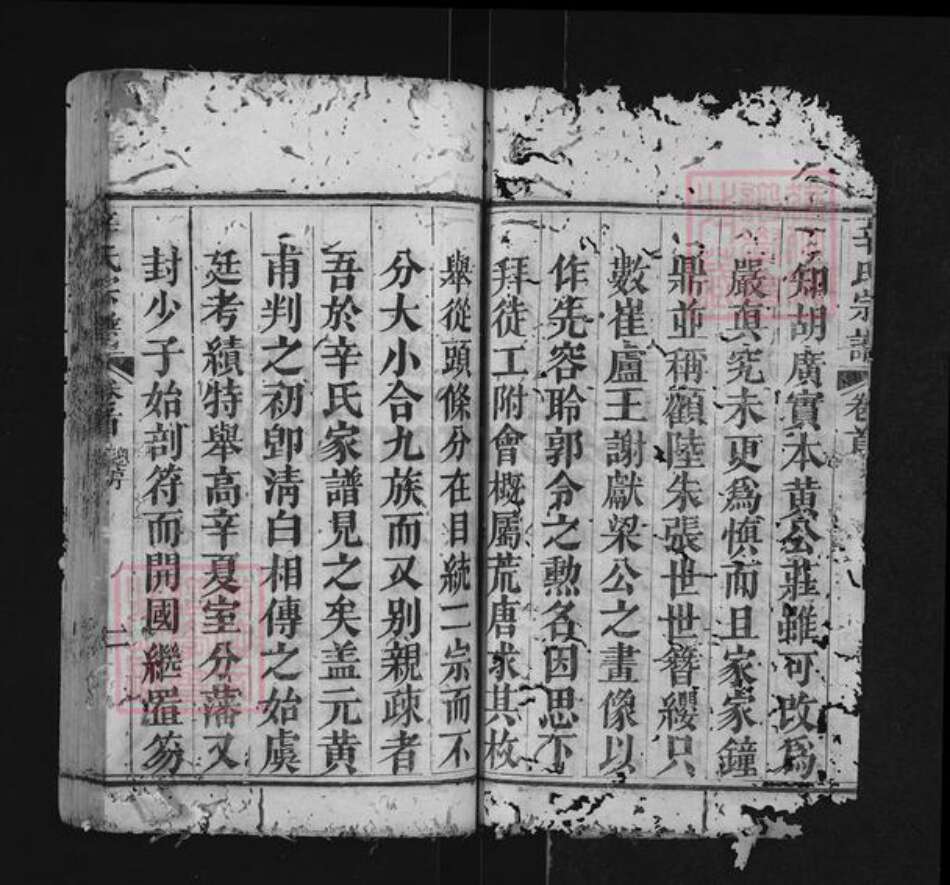 辛氏宗譜
卷首
知胡廣實本黃公莊雖可改為
嚴真究未更爲慎而且家家鐘
鼎並稱顧陸朱張世世簪纓只
數崔盧王謝獻梁公之畫像以
作先容聆郭令之勲名因思下
拜徒工附會概屬荒唐求其枚
舉從頭條分在目統二宗而不
分大小合九族而又别親疎者
吾於辛氏家譜見之矣盖元黃
甫判之初卽清白相傳之始虞
廷考績特舉高辛夏室分藩又
封少子始剖符而開國繼置笏
二